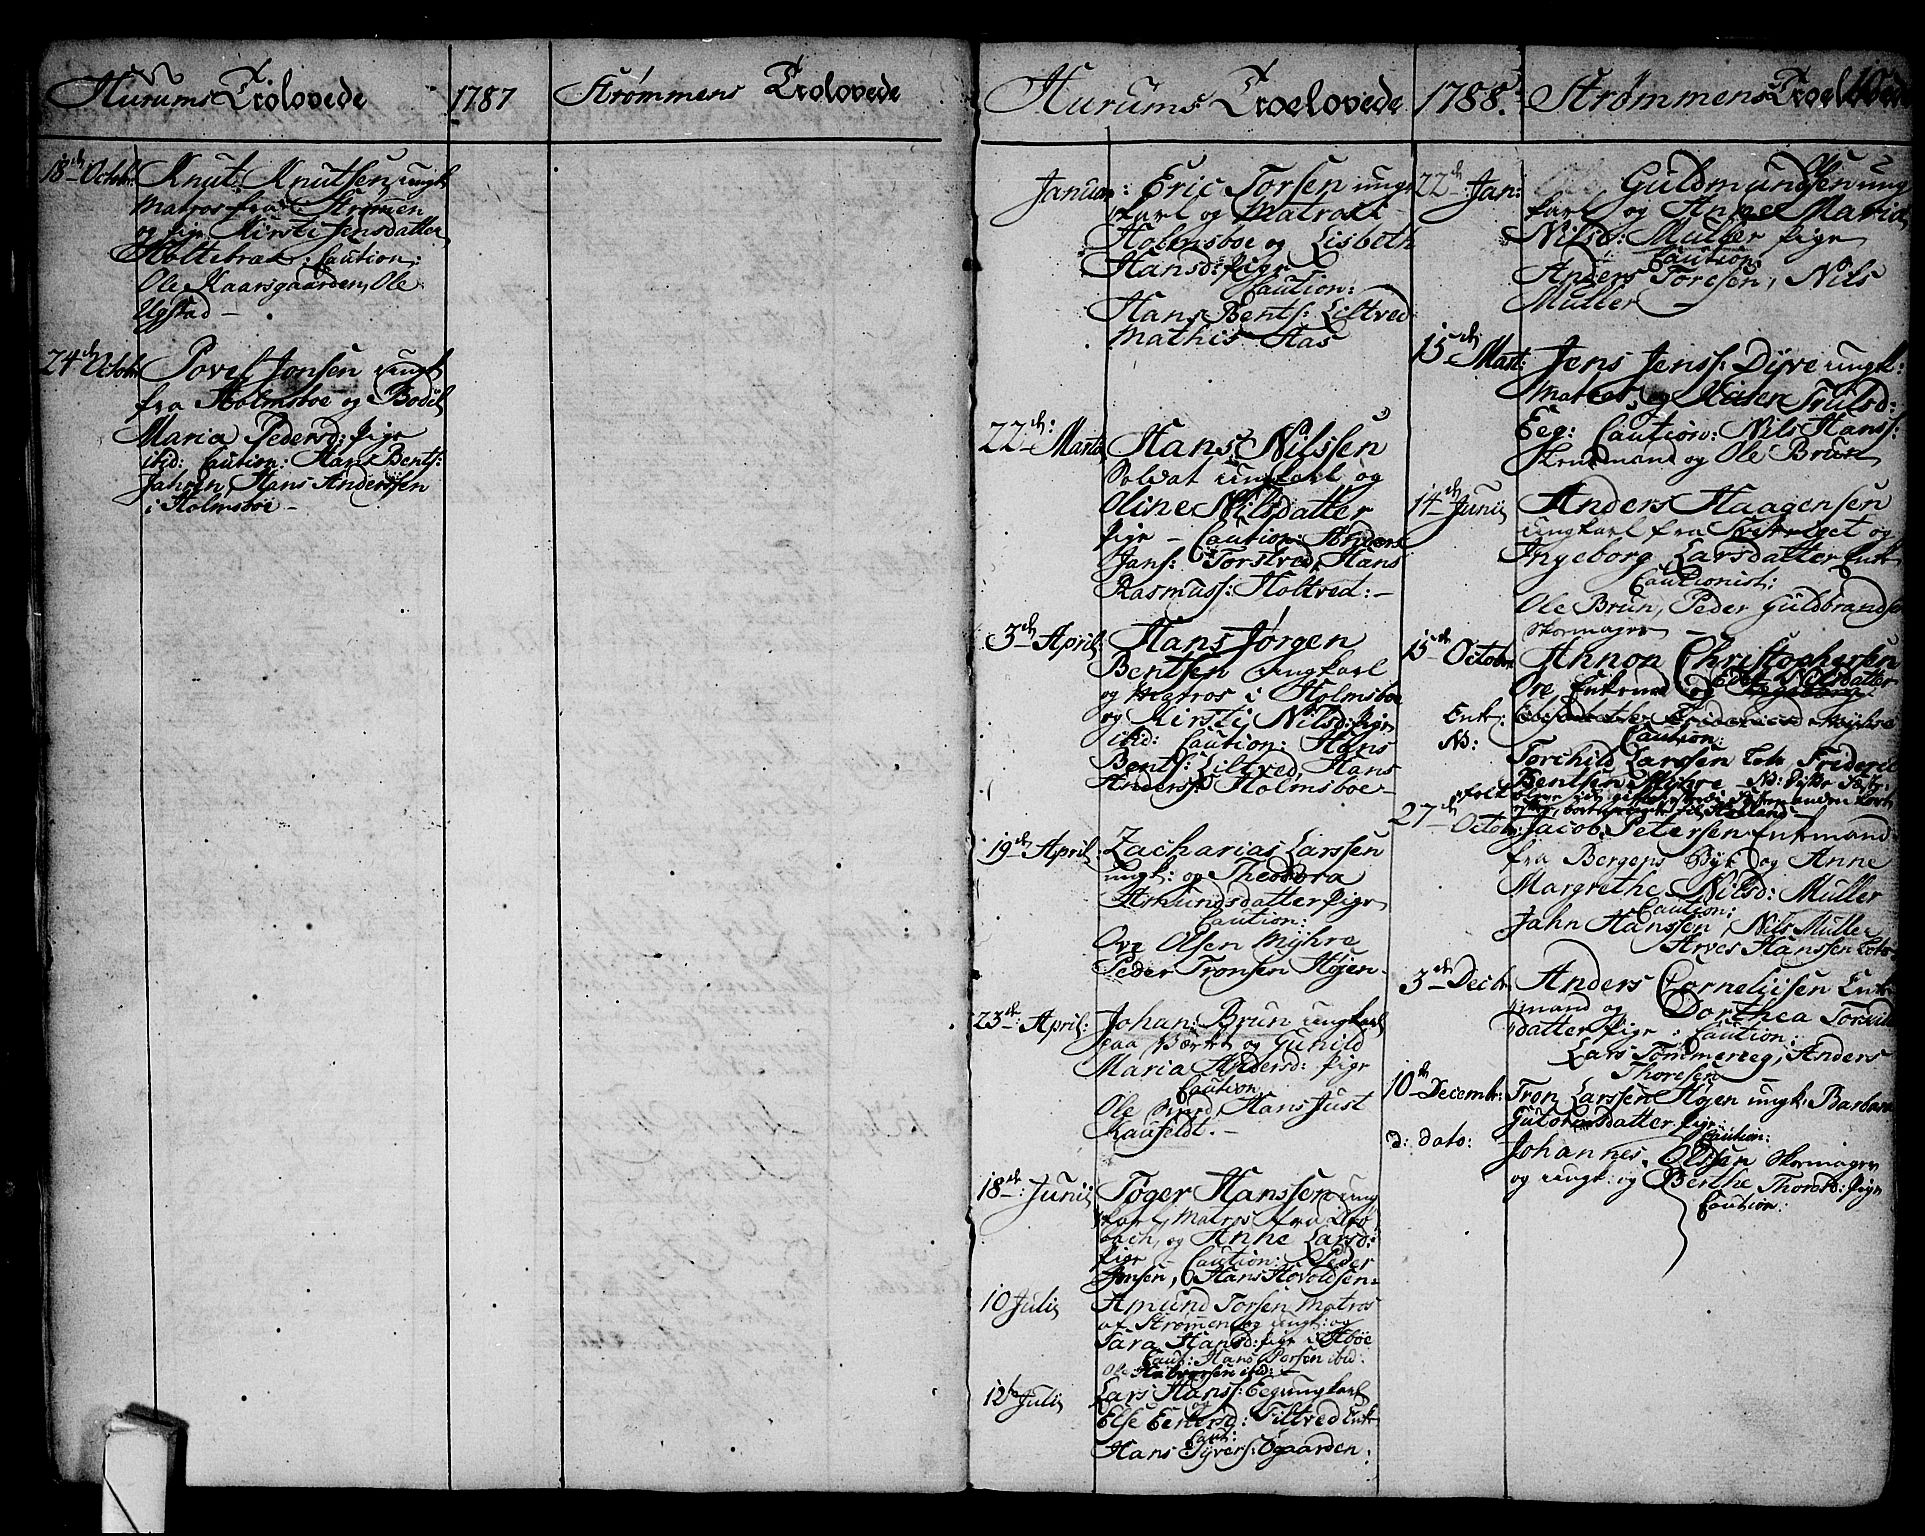 Hurums Trolovede
1787
Strømmens Trolovede
18de Octobr:
Knut Knutsen ungk
Matros fra Strømen
og pige Kirsti Jensdatter
Holtebrak: Caution:
Ole Kaarsgaarden, Ole
Ugstad —
24de Octobr:
Povel Jonsen ungk
fra Holmsboe og Bodil
Maria Pedersd: pige
ibid: Caution: Hans Bents:
Jahren, Hans Anderssen
i Holmsboe —
Hurums Troelovede
1788
Strømmens Troelovede
Januar:
Eric Torsen ung
karl og Matros i
Holmsboe og Lisbeth
Hansd: pige
Caution:
Hans Bents: Liltved
Mathis Aas
22de: Martii
Hans Nilssen
Soldat ungkarl og
Oline Nilsdatter
pige — Caution: Anders
Jans: Torstved, Hans
Rasmuss: Holtved: —
3de April:
Hans Jørgen
Bentsen ungkarl
og Matros i Holmsboe
og Kirsti Nilsd: pige
ibid: Caution: Hans
Bents: Liltved, Hans
Anderss: Holmsboe —
19de April:
Zacharias Larssen
ungk: og Theodora
Amundsdatter pige
Caution:
Ove Olsen Myhre
Peder Tronsen Højen —
23de: April:
Johan: Brun ungkarl
paa Værket og Gunild
Maria Andersd: pige
Caution
Ole Hans Just
Kaufeldt. —
18de: Junii
Tøger Hanssen ung
karl, Matros fra Drø
bach, og Anne Larsd:
pige — Caution: Peder
Jonsen, Hans Hovoldsen
10 Julii
Amund Torsen Matros
af Strømen og ungk: og
Sara Hansd: pige i
Caut: Hans ibid:
Ole Halvorsen ibid: —
12te Julii
Lars Hanss: Eeg ungkarl
og
Else Enersd: Tiltved Enk
Caut:
Hans Syvers: Øgaarden:
22de: Jan:
Ole Guldmundsen ung
karl og Anne Maria
Nilsd: Muller pige
Caution:
Anders Toresen, Nils
Muller —
15de Mart:
Jens Jens: Dyve ungk:
Matros og Kisten Trulsd:
Eeg: Caution: Nils Hans:
og Ole Brun
14de Junii
Anders Haagensen
ungkarl fra og
Ingeborg Larsdatter Enk
Cautionist:
Ole Brun, Peder Guldbrandsen
Skomager —
15de Octobr
Annon Christophersen
Ore Enkemd og Nilsdatter
Enk:
Fridericsd Myhre
Caution:
NB:
Torchild Larssen Lots Frideric
Bentsen Myhre — NB:
27de Octobr:
Jacob Petersen Enkemand
fra Bergens Bye og Anne
Margrethe Nilsd: Muller
Caution:
Jahn Hanssen, Nils Muller
Arves Hanssen Lots —
3de Decbr
Anders Corneliisen Enk
mand og Dorthea
datter pige: Caution:
Lars Tømmereeg, Anders
Thoresen
10de Decembr:
Tron Larssen Højen ungk: Barbara
Gutormsdatter pige
Caution:
d: dato:
Johannes Olssen Skomager
og ungk: og Berthe Thoresd: pige
Caution: